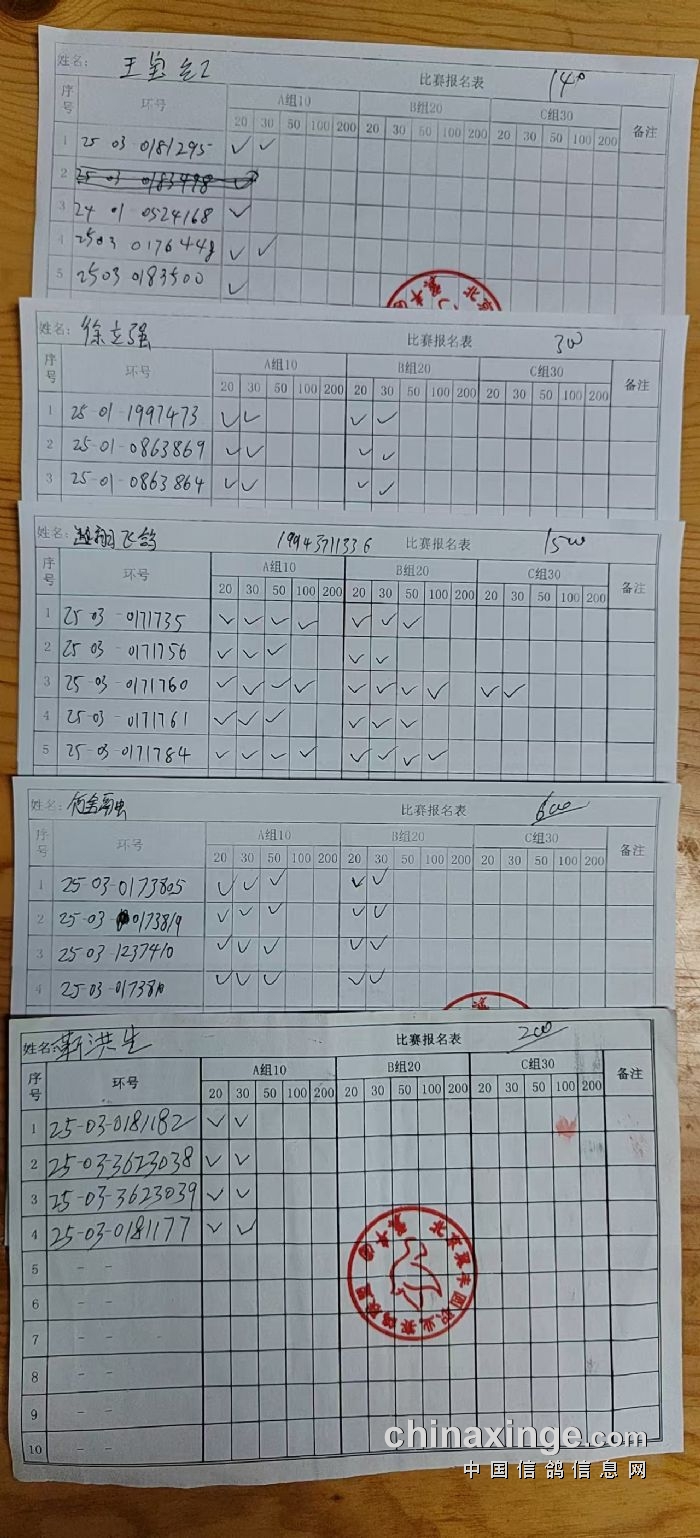 姓名: 王宝红 比赛报名表 140
序号 环号 A组10 B组20 C组30 备注
20 30 50 100 200 20 30 50 100 200 20 30 50 100 200
1 25 03 0181295 ✓ ✓
2 25 03 0183498 ✓
3 24 01 0524168 ✓
4 2503 0176448 ✓ ✓
5 2503 0183500 ✓
姓名: 徐立强 比赛报名表 300
序号 环号 A组10 B组20 C组30 备注
20 30 50 100 200 20 30 50 100 200 20 30 50 100 200
1 25-01-1997473 ✓ ✓ ✓ ✓
2 25-01-0863869 ✓ ✓ ✓ ✓
3 25-01-0863864 ✓ ✓ ✓ ✓
姓名: 翔飞鸽 19943711336 比赛报名表 1500
序号 环号 A组10 B组20 C组30 备注
20 30 50 100 200 20 30 50 100 200 20 30 50 100 200
1 25-03-0171735 ✓ ✓ ✓ ✓ ✓ ✓ ✓
2 25 03-0171756 ✓ ✓ ✓ ✓ ✓
3 25-03-0171760 ✓ ✓ ✓ ✓ ✓ ✓ ✓ ✓ ✓ ✓
4 25-03-0171761 ✓ ✓ ✓ ✓ ✓ ✓
5 25-03-0171784 ✓ ✓ ✓ ✓ ✓ ✓ ✓ ✓
姓名: 比赛报名表 600
序号 环号 A组10 B组20 C组30 备注
20 30 50 100 200 20 30 50 100 200 20 30 50 100 200
1 25-03-0173805 ✓ ✓ ✓ ✓ ✓
2 25-03-0173819 ✓ ✓ ✓ ✓ ✓
3 25-03-1237410 ✓ ✓ ✓ ✓ ✓
4 25-03-0173810 ✓ ✓ ✓ ✓ ✓
姓名: 靳洪生 比赛报名表 200
序号 环号 A组10 B组20 C组30 备注
20 30 50 100 200 20 30 50 100 200 20 30 50 100 200
1 25-03-0181182 ✓ ✓
2 25-03-3623038 ✓ ✓
3 25-03-3623039 ✓ ✓
4 25-03-0181177 ✓ ✓
5 - -
6 - -
7 - -
8 - -
9 - -
10 - -
chinaxinge.com
中国信鸽信息网